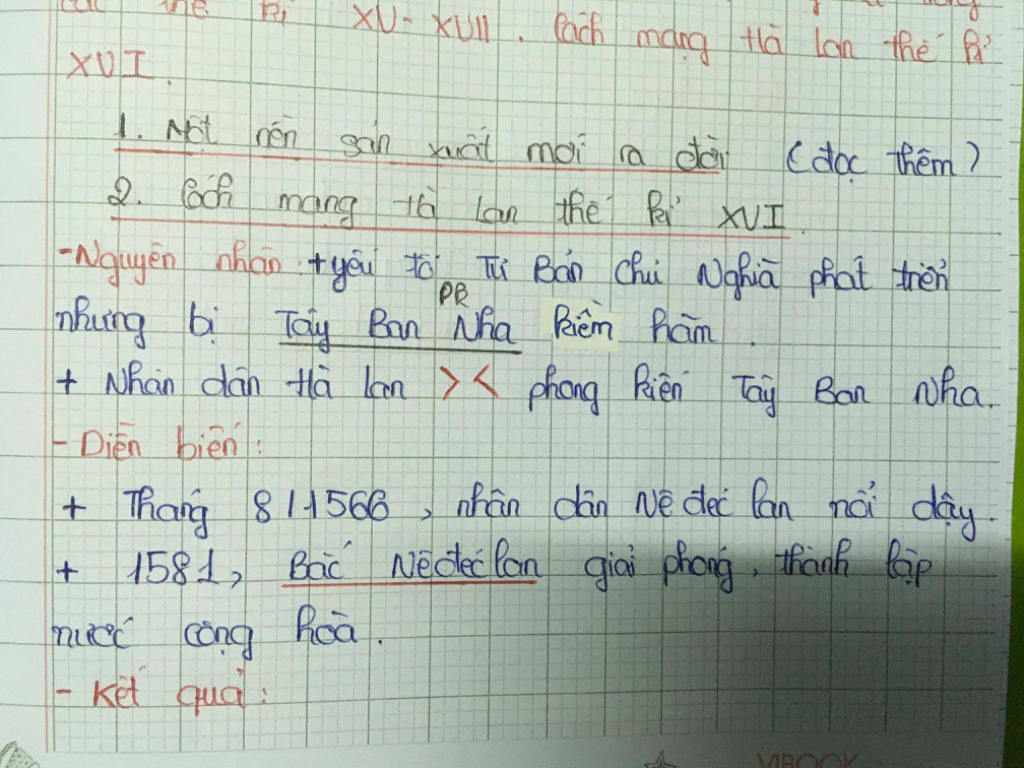 thế kỉ XV - XVII. Cách mạng Hà Lan thế kỉ
XVI.
1. Một nền sản xuất mới ra đời (đọc thêm)
2. Cách mạng Hà Lan thế kỉ XVI
- Nguyên nhân: + yếu tố Tư Bản Chủ Nghĩa phát triển
PK
nhưng bị Tây Ban Nha kiềm hãm.
+ Nhân dân Hà Lan >< phong kiến Tây Ban Nha.
- Diễn biến:
+ Tháng 8/1566, nhân dân Nêđeclan nổi dậy.
+ 1581, Bắc Nêđeclan giải phóng, thành lập
nước cộng hoà.
- Kết quả:
VIBOOK